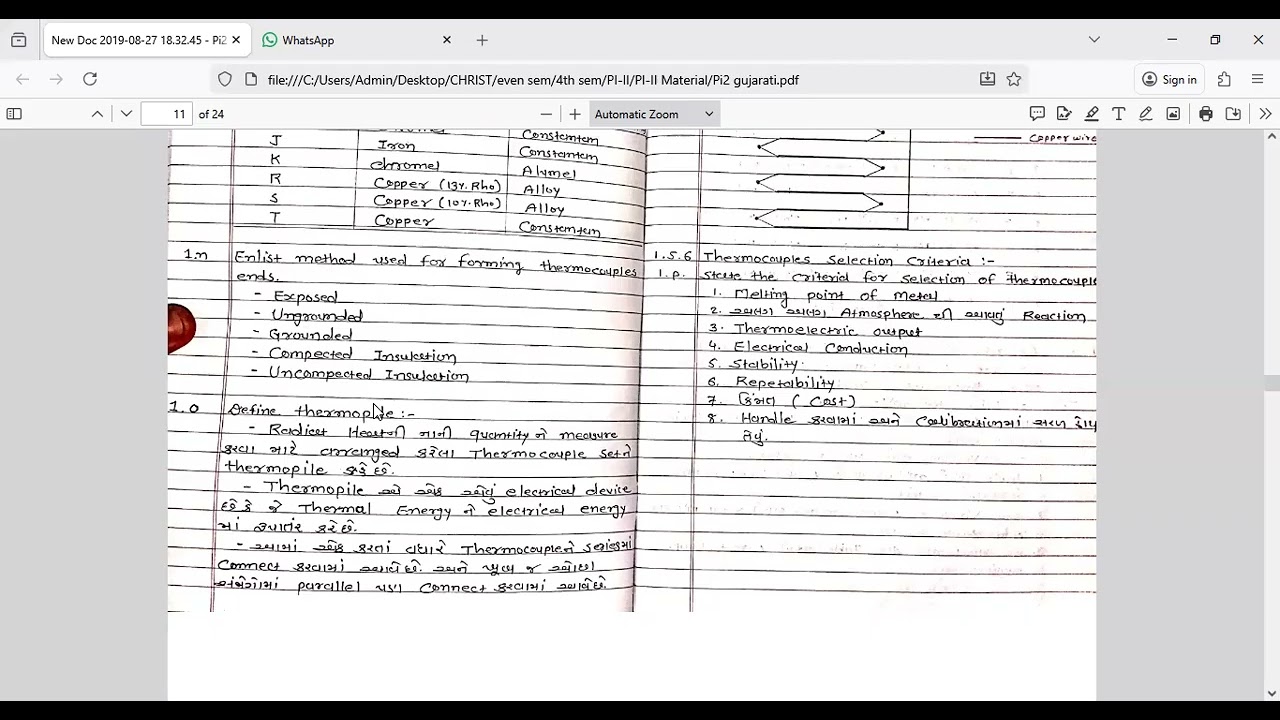 New Doc 2019-08-27 18.32.45 - Pi2
WhatsApp
file:///C:/Users/Admin/Desktop/CHRIST/even sem/4th sem/PI-II/PI-II Material/Pi2 gujarati.pdf
Sign in
11 of 24
Automatic Zoom
Constantan
J Iron Constantan
K chromel Alumel
R Copper (13%. Rho) Alloy
S Copper (10%. Rho) Alloy
T Copper Constantan
1.n Enlist method used for forming thermocouples
ends.
- Exposed
- Ungrounded
- Grounded
- Compected Insulation
- Uncompected Insulation
1.o Define thermopile :-
- Radiant Heatની નાની quantity ને measure
કરવા માટે arranged કરેલા Thermocouple setને
thermopile કહે છે.
- Thermopile એ એક એવું electrical device
છે કે જે Thermal Energy ને electrical energy
માં રૂપાંતર કરે છે.
- આમાં એક કરતાં વધારે Thermocoupleને seriesમાં
Connect કરવામાં આવે છે. અને ખૂબ જ ઓછા
સંજોગોમાં parallel પણ Connect કરવામાં આવે છે.
Copper wire
1.5.6 Thermocouples Selection Criteria :-
1.p. State the criteria for selection of thermocouple
1. Melting point of Metal
2. અલગ અલગ Atmosphere ની આવતું Reaction
3. Thermoelectric output
4. Electrical Conduction
5. Stability.
6. Repetability.
7. કિંમત ( Cost )
8. Handle કરવામાં અને Calibrationમાં સરળ હોય
તેવું.